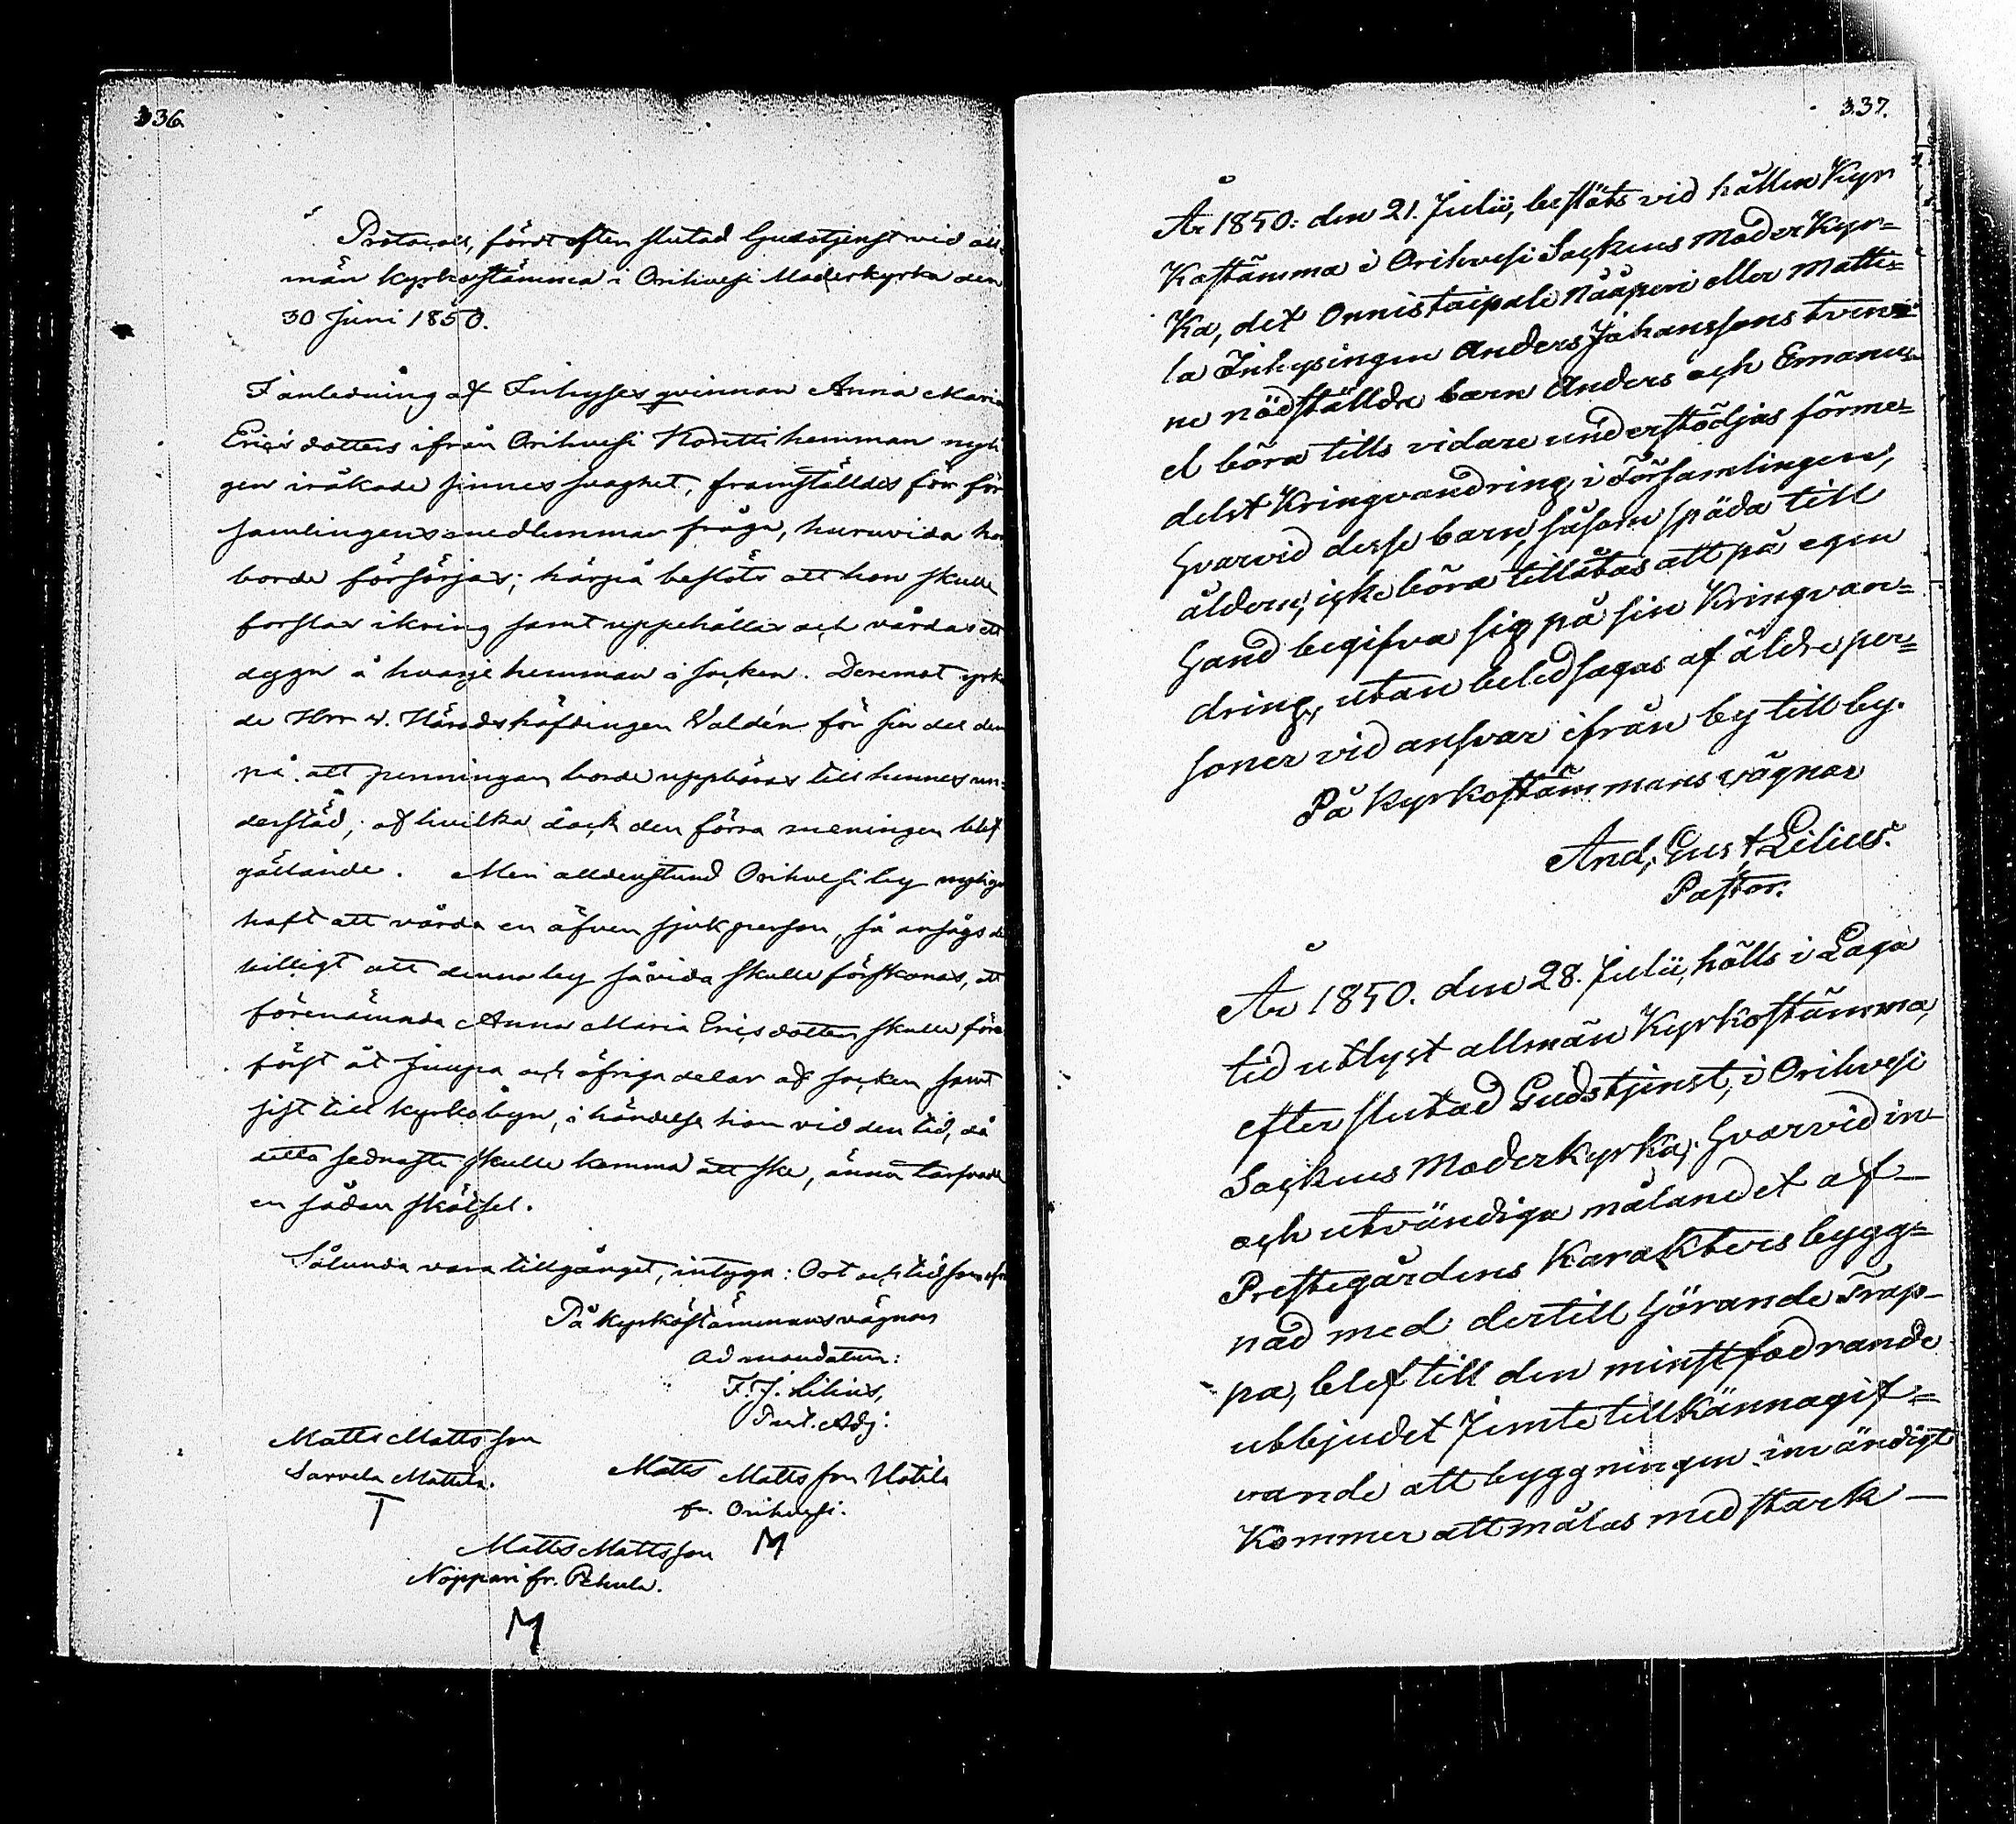 336
Protocoll, fördt efter slutad Gudstjenst vid all-
män kyrkostämma i Orihvesi Moderkyrka den
30 Juni 1850.
I anledning af Inhyses qvinnan Anna Maria
Erics dotters ifrån Orihvesi Konttihemman nyli
gen iråkade sinnes svaghet, framställdes för för
samlingens medlemmar fråga, huruvida hon
borde försörjas; härpå beslöts att hon skulle
forslas ikring samt uppehållas och vårdas ett
dygn å hvarje hemman i socken. Deremot yrka
de Herr v. HäradshöfdingenВаldén för sin del der
på att penningar borde uppbäras till hennes un-
derstöd; af hvilka dock den förra meningen blef
gällande. Men alldenstund Orihvesi by nyligen
haft att vårda en äfven sjuk person, så ansågs det
billigt att denna by såvida skulle förskonas, att
förenämnda Anna Maria Ericsdotter skulle föras
först åt Juupa och öfriga delar af socken, samt
sist till kyrkobyn, i händelse hon vid den tid, då
detta sednaste skulle komma att ske, ännu tarfvade
en sådan skötsel.
Sålunda vara tillgånget, intyga: Ort och tid som ofvan
På kyrkostämmans vägnar
ad mandatum:
F. J. Lilius,
Past. Adj.
Matts Mattsson
Sarvela Mattila.
T
Matts Mattsson Uotila
fr. Orihvesi.
M
Matts Mattsson
Noppari fr. Pehula.
M
337.
År 1850. den 21. Julii, beslöts vid hållen Kyr
Kostämma i Orihvesi Sockens Moder Kyr=
Ka, det Onnistaipale Nääperi eller Matti=
la Inhysingen Anders Johanssons tven=
ne nödställda barn Anders och Emanu=
el böra tills vidare understödjas förme=
delst Kringvandring i Församlingen,
hvarvid desse barn, såsom späda till
åldern, icke böra tillåtas att på egen
hand begifva sig på sin Kringvan=
dring, utan beledsagas af äldre per=
soner vid ansvar ifrån by till by.
På Kyrkostämmans vägnar
And. Gust Lilius.
Pastor.
År 1850. den 28. Julii, hölls i Laga
tid utlyst allmän Kyrkostämma,
efter slutad Gudstjenst, i Orihvesi
Sockens Moderkyrka, hvarvid in-
och utvändiga målandet af
Prestegårdens Karaktersbygg=
nad med dertill hörande Trap-
pa, blef till den minstfodrande
utbjudet jemte tillkännagif=
vande att byggningen invändigt
Kommer att målas med stark